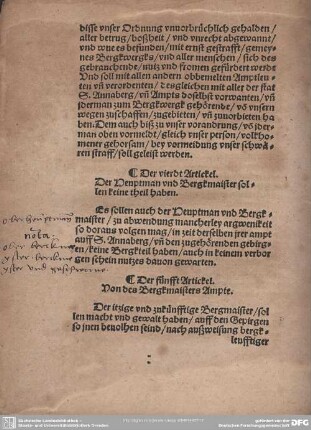 disse vnser Ordnung vnuorbrüchlich gehalden/
aller betrug/boßheit/ vnd vnrecht abgewannt/
vnd wue es befunden/mit ernst gestrafft/gemey-
nes Bergkwergks/vnd aller menschen/sich des
gebrauchende/nutz vnd fromen gefürdert werde
Vnd soll mit allen andern obbemelten Amptleu-
ten vñ verordenten/desgleichen mit aller der stat
S. Annaberg/vñ Ampts doselbst vorwanten/vñ
jderman zum Bergkwergk gehörende/võ vnsern
wegen zuschaffen/zugebieten/vñ zunorbieten ha
ben. Dem auch biß zu vnser vorandrung/vō jder-
man oben vormeldet/gleich vnser person/volkho-
mener gehorsam/bey vormeydung vnser schwä-
ren straff/soll geleist werden.
¶ Der vierdt Artickel.
Der Heuptman vnd Bergkmaister sol-
len keine theil haben.
Es sollen auch der Heuptman vnd Bergk-
maister/zu abwendung mancherley argwenikeit
so doraus volgen mag/in zeit derselben jrer ampt
auff S. Annaberg/vñ den zugehörenden gebirg-
en/keine Bergkteil haben/auch in keinem verbor
gen schein nutzes dauon gewarten.
¶ Der fünfft Artickel.
Von des Bergkmaisters Ampte.
Der itzige vnd zukünfftige Bergmaister/sol
len macht vnd gewalt haben/auff den Gepirgen
so jnen beuolhen seind/nach außweisung bergk-
leufftiger
ober heuptman
nota